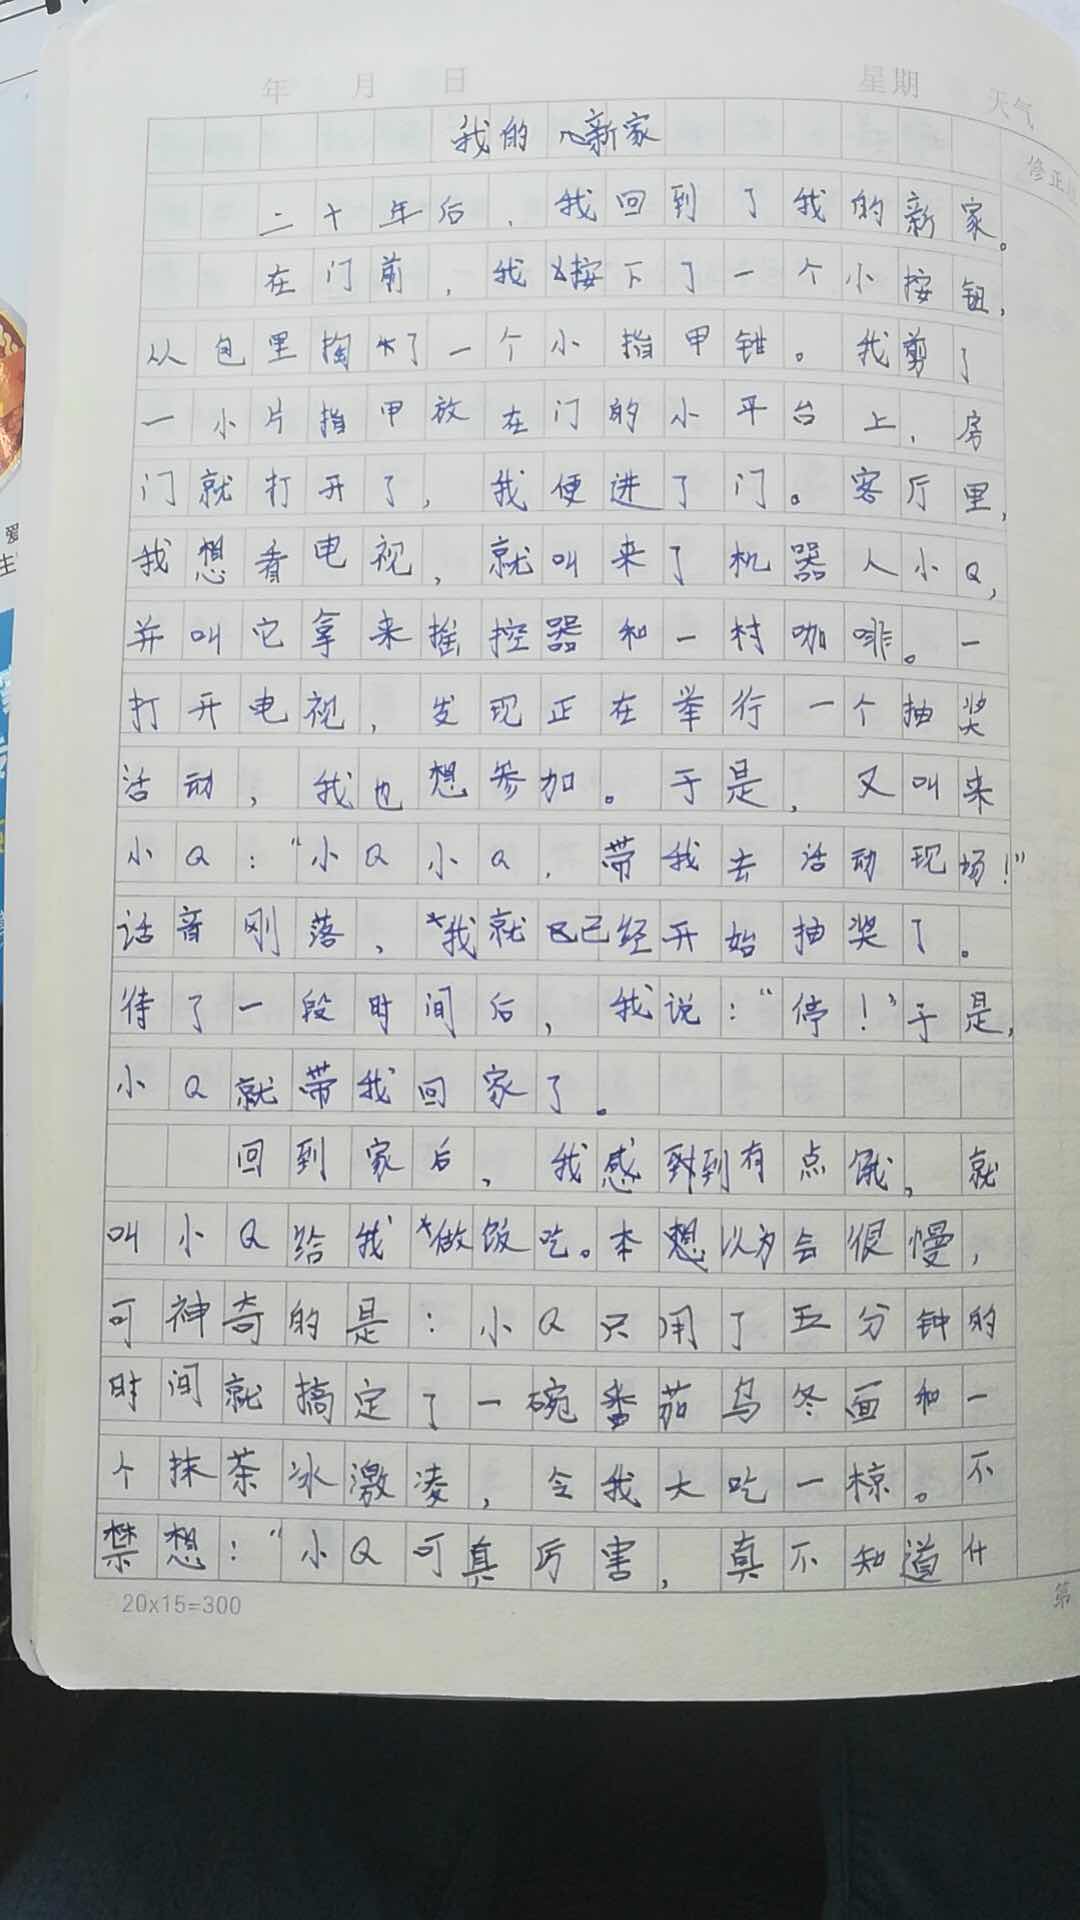 年 月 日 星期 天气
修正
我的新家
二十年后,我回到了我的新家。
在门前,我按下了一个小按钮,
从包里掏了一个小指甲钳。我剪了
一小片指甲放在门的小平台上,房
门就打开了,我便进了门。客厅里,
我想看电视,就叫来了机器人小Q,
并叫它拿来摇控器和一村咖啡。一
打开电视,发现正在举行一个抽奖
活动,我也想参加。于是,又叫来
小Q:“小Q小Q,带我去活动现场!”
话音刚落,我就已经开始抽奖了。
待了一段时间后,我说:“停!”于是,
小Q就带我回家了。
回到家后,我感到有点饿,就
叫小Q给我做饭吃。本想以为会很慢,
可神奇的是:小Q只用了五分钟的
时间就搞定了一碗番茄乌冬面和一
个抹茶冰激凌,令我大吃一椋。不
禁想:“小Q可真厉害,真不知道什
20x15=300
第
爱
生